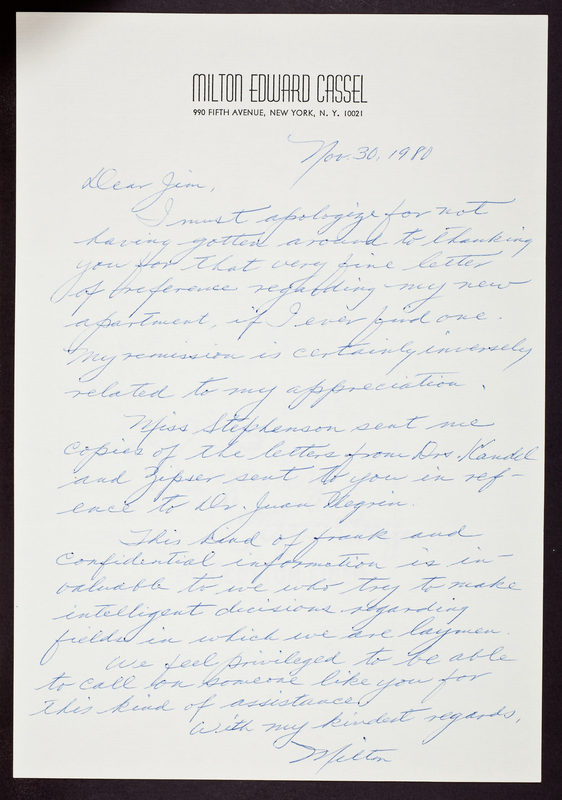 MILTON EDWARD CASSEL
990 FIFTH AVENUE, NEW YORK, N. Y. 10021
Nov. 30, 1980
Dear Jim,
I must apologize for not
having gotten around to thanking
you for that very fine letter
of reference regarding my new
apartment, if I ever find one.
My remission is certainly inversely
related to my appreciation.
Miss Stephenson sent me
copies of the letters from Drs. Kandel
and Zipser sent to you in ref-
ence to Dr. Juan Negrin.
This kind of frank and
confidential information is in-
valuable to we who try to make
intelligent decisions regarding
fields in which we are laymen.
We feel privileged to be able
to call on someone like you for
this kind of assistance.
With my kindest regards,
Milton